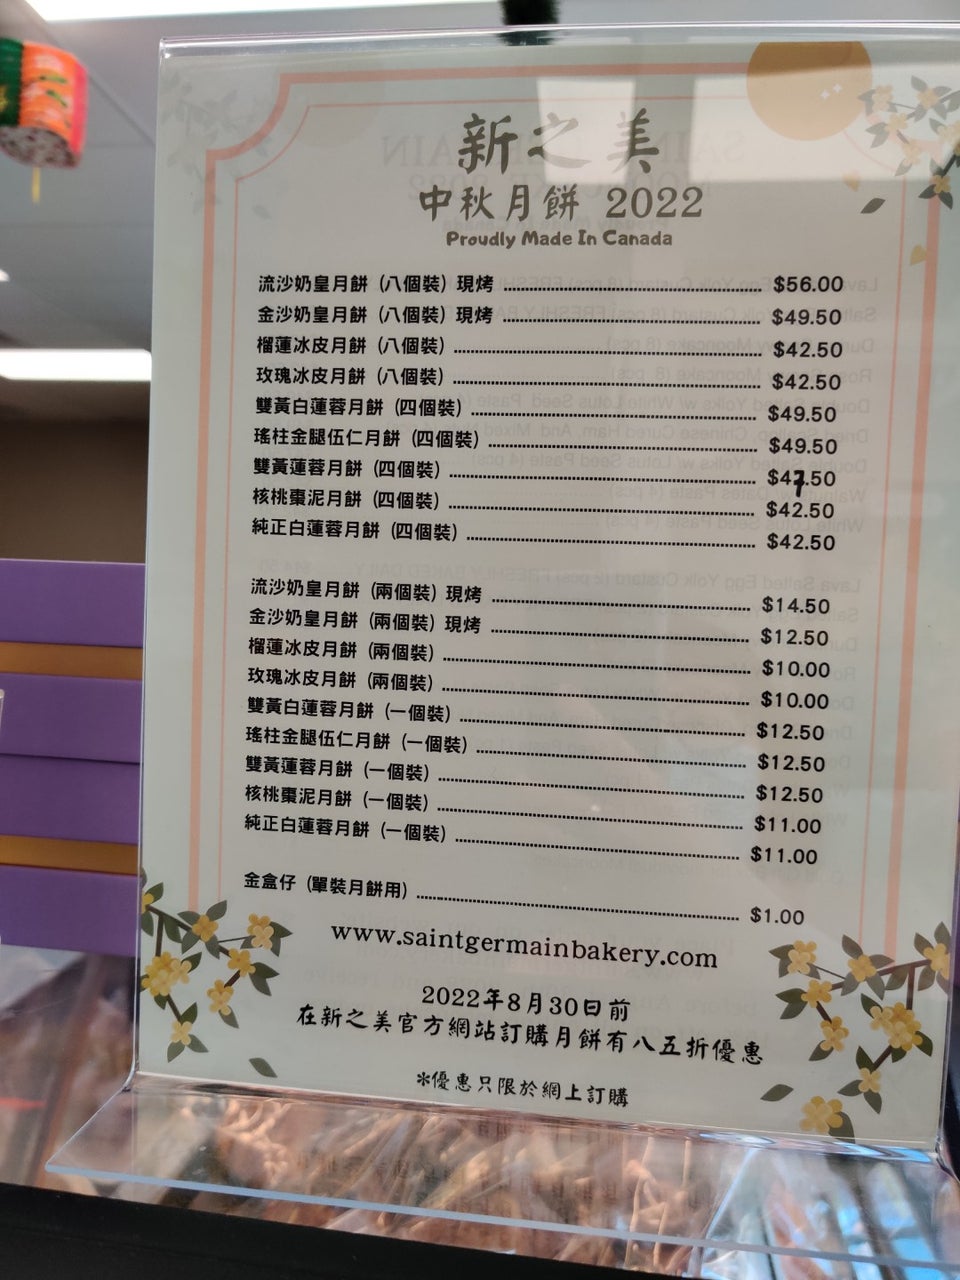 新之美
中秋月餅 2022
Proudly Made In Canada
流沙奶皇月餅 (八個裝) 現烤 $56.00
金沙奶皇月餅 (八個裝) 現烤 $49.50
榴蓮冰皮月餅 (八個裝) $42.50
玫瑰冰皮月餅 (八個裝) $42.50
雙黃白蓮蓉月餅 (四個裝) $49.50
瑤柱金腿伍仁月餅 (四個裝) $49.50
雙黃蓮蓉月餅 (四個裝) $47.50
核桃棗泥月餅 (四個裝) $42.50
純正白蓮蓉月餅 (四個裝) $42.50
流沙奶皇月餅 (兩個裝) 現烤 $14.50
金沙奶皇月餅 (兩個裝) 現烤 $12.50
榴蓮冰皮月餅 (兩個裝) $10.00
玫瑰冰皮月餅 (兩個裝) $10.00
雙黃白蓮蓉月餅 (一個裝) $12.50
瑤柱金腿伍仁月餅 (一個裝) $12.50
雙黃蓮蓉月餅 (一個裝) $12.50
核桃棗泥月餅 (一個裝) $11.00
純正白蓮蓉月餅 (一個裝) $11.00
金盒仔 (單裝月餅用) $1.00
www.saintgermainbakery.com
2022年8月30日前
在新之美官方網站訂購月餅有八五折優惠
*優惠只限於網上訂購